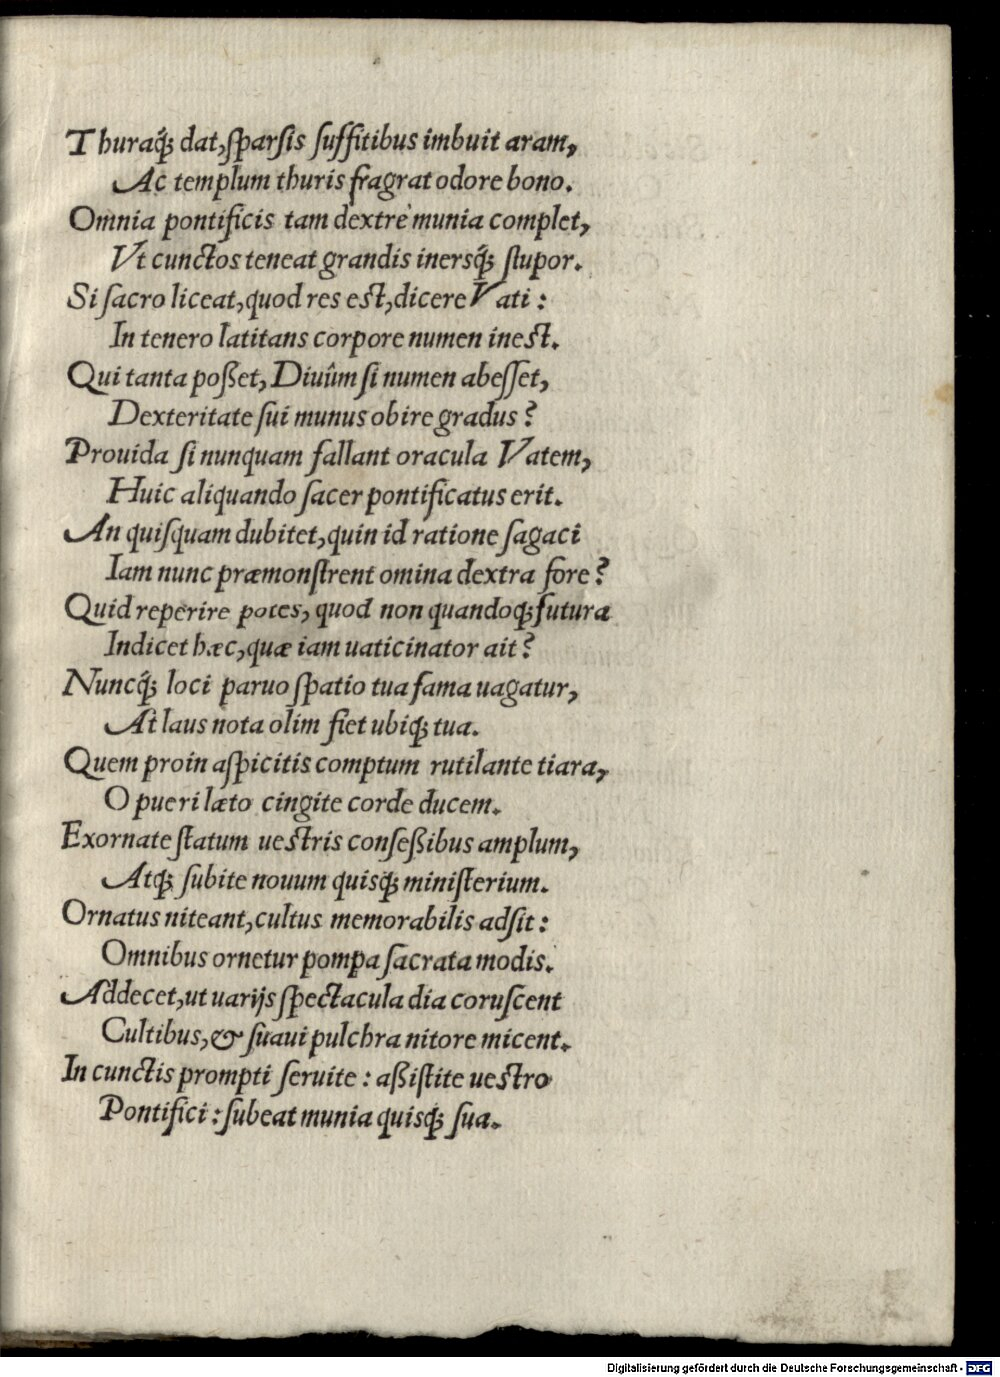 Thuraq́; dat, ſparſis ſuffitibus imbuit aram,
Ac templum thuris fragrat odore bono.
Omnia pontificis tam dextrè munia complet,
Vt cunctos teneat grandis inersq́; ſtupor.
Si ſacro liceat, quod res eſt, dicere Vati:
In tenero latitans corpore numen ineſt.
Qui tanta poßet, Diuûm ſi numen abeſſet,
Dexteritate ſui munus obire gradus?
Prouida ſi nunquam fallant oracula Vatem,
Huic aliquando ſacer pontificatus erit.
An quiſquam dubitet, quin id ratione ſagaci
Iam nunc præmonſtrent omina dextra fore?
Quid reperire potes, quod non quandoq; futura
Indicet hæc, quæ iam uaticinator ait?
Nuncq́; loci paruo ſpatio tua fama uagatur,
At laus nota olim fiet ubiq; tua.
Quem proin aſpicitis comptum rutilante tiara,
O pueri læto cingite corde ducem.
Exornate ſtatum ueſtris conſeßibus amplum,
Atq; ſubite nouum quisq; miniſterium.
Ornatus niteant, cultus memorabilis adſit:
Omnibus ornetur pompa ſacrata modis.
Addecet, ut uarijs ſpectacula dia coruſcent
Cultibus, & ſuaui pulchra nitore micent.
In cunctis prompti ſeruite: aßiſtite ueſtro
Pontifici: ſubeat munia quisq́; ſua.
Digitalisierung gefördert durch die Deutsche Forschungsgemeinschaft - DFG